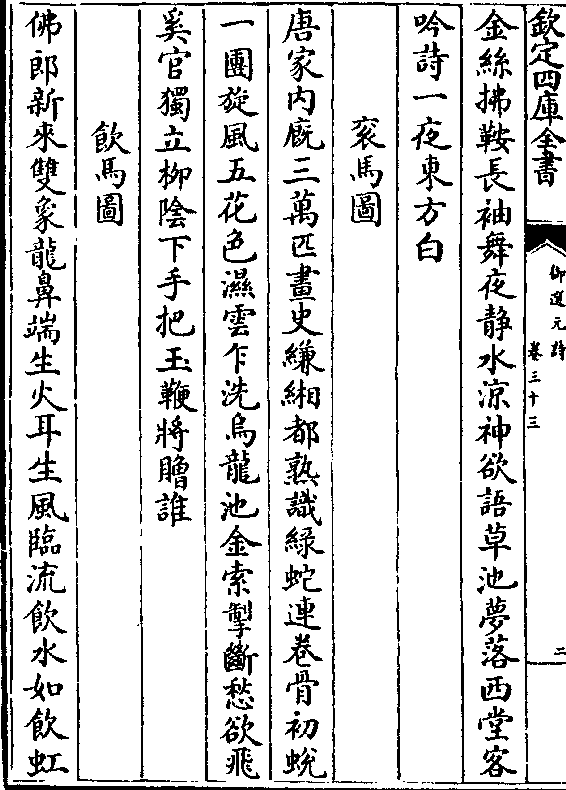 欽定四庫全書
御選元詩
卷三十三
二
金絲拂鞍長袖舞夜静水涼神欲語草池夢落西堂客
吟詩一夜東方白
衮馬圖
唐家内廐三萬匹畫史縑緗都熟識緑蛇連卷骨初蛻
一團旋風五花色濕雲乍洗烏龍池金索掣斷愁欲飛
奚官獨立柳陰下手把玉鞭將贈誰
飲馬圖
佛郎新來雙象龍鼻端生火耳生風臨流飲水如飲虹